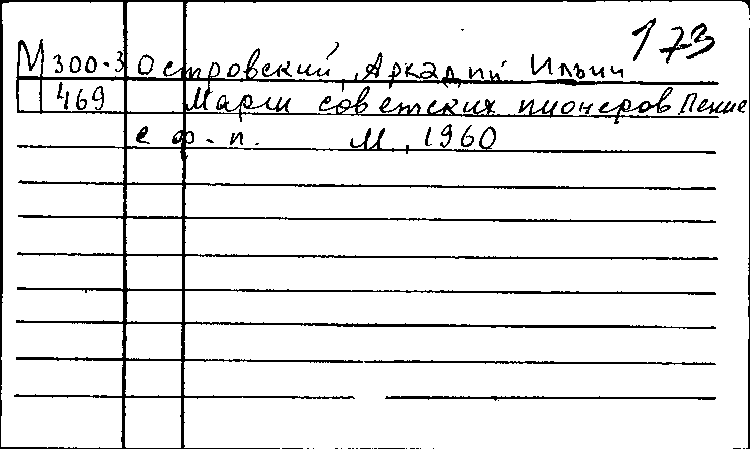 173
М 300-3 Островский, Аркадий Ильич
469 Марш советских пионеров Пение
с ф.-п. М., 1960